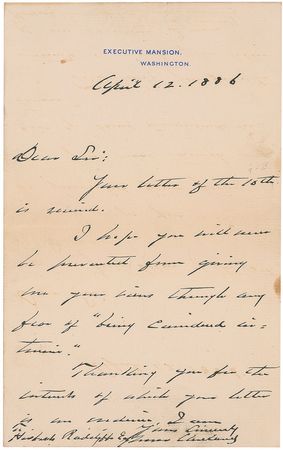 EXECUTIVE MANSION,
WASHINGTON.
April 12. 1886
Dear Sir:
Your letter of the 10th
is received.
I hope you will never
be prevented from giving
me your views through any
fear of "being considered in-
trusive."
Thanking you for the
interests of which your letter
is an evidence, I am
Yours Sincerely
To
Rudolph Esq Grover Cleveland